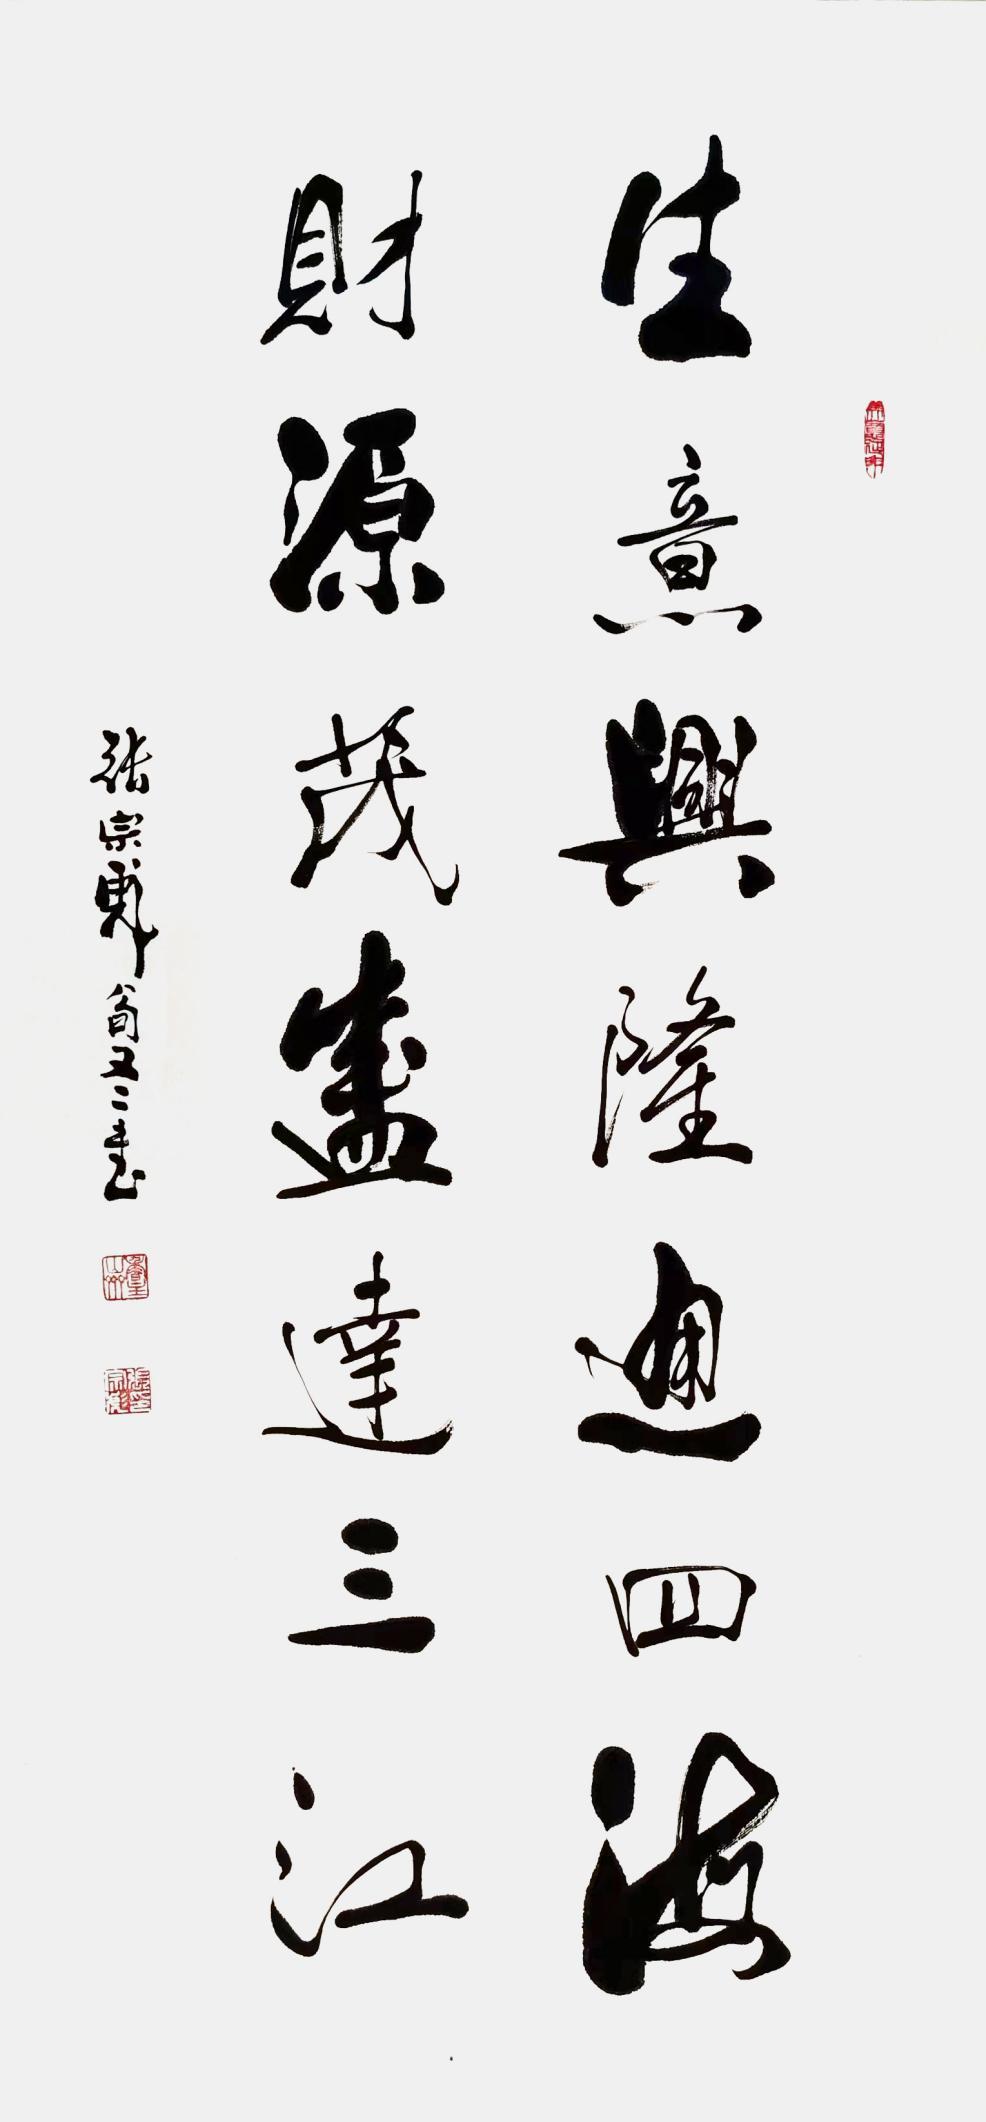 生意興隆通四海
財源茂盛達三江
張宗彪 旬又二書